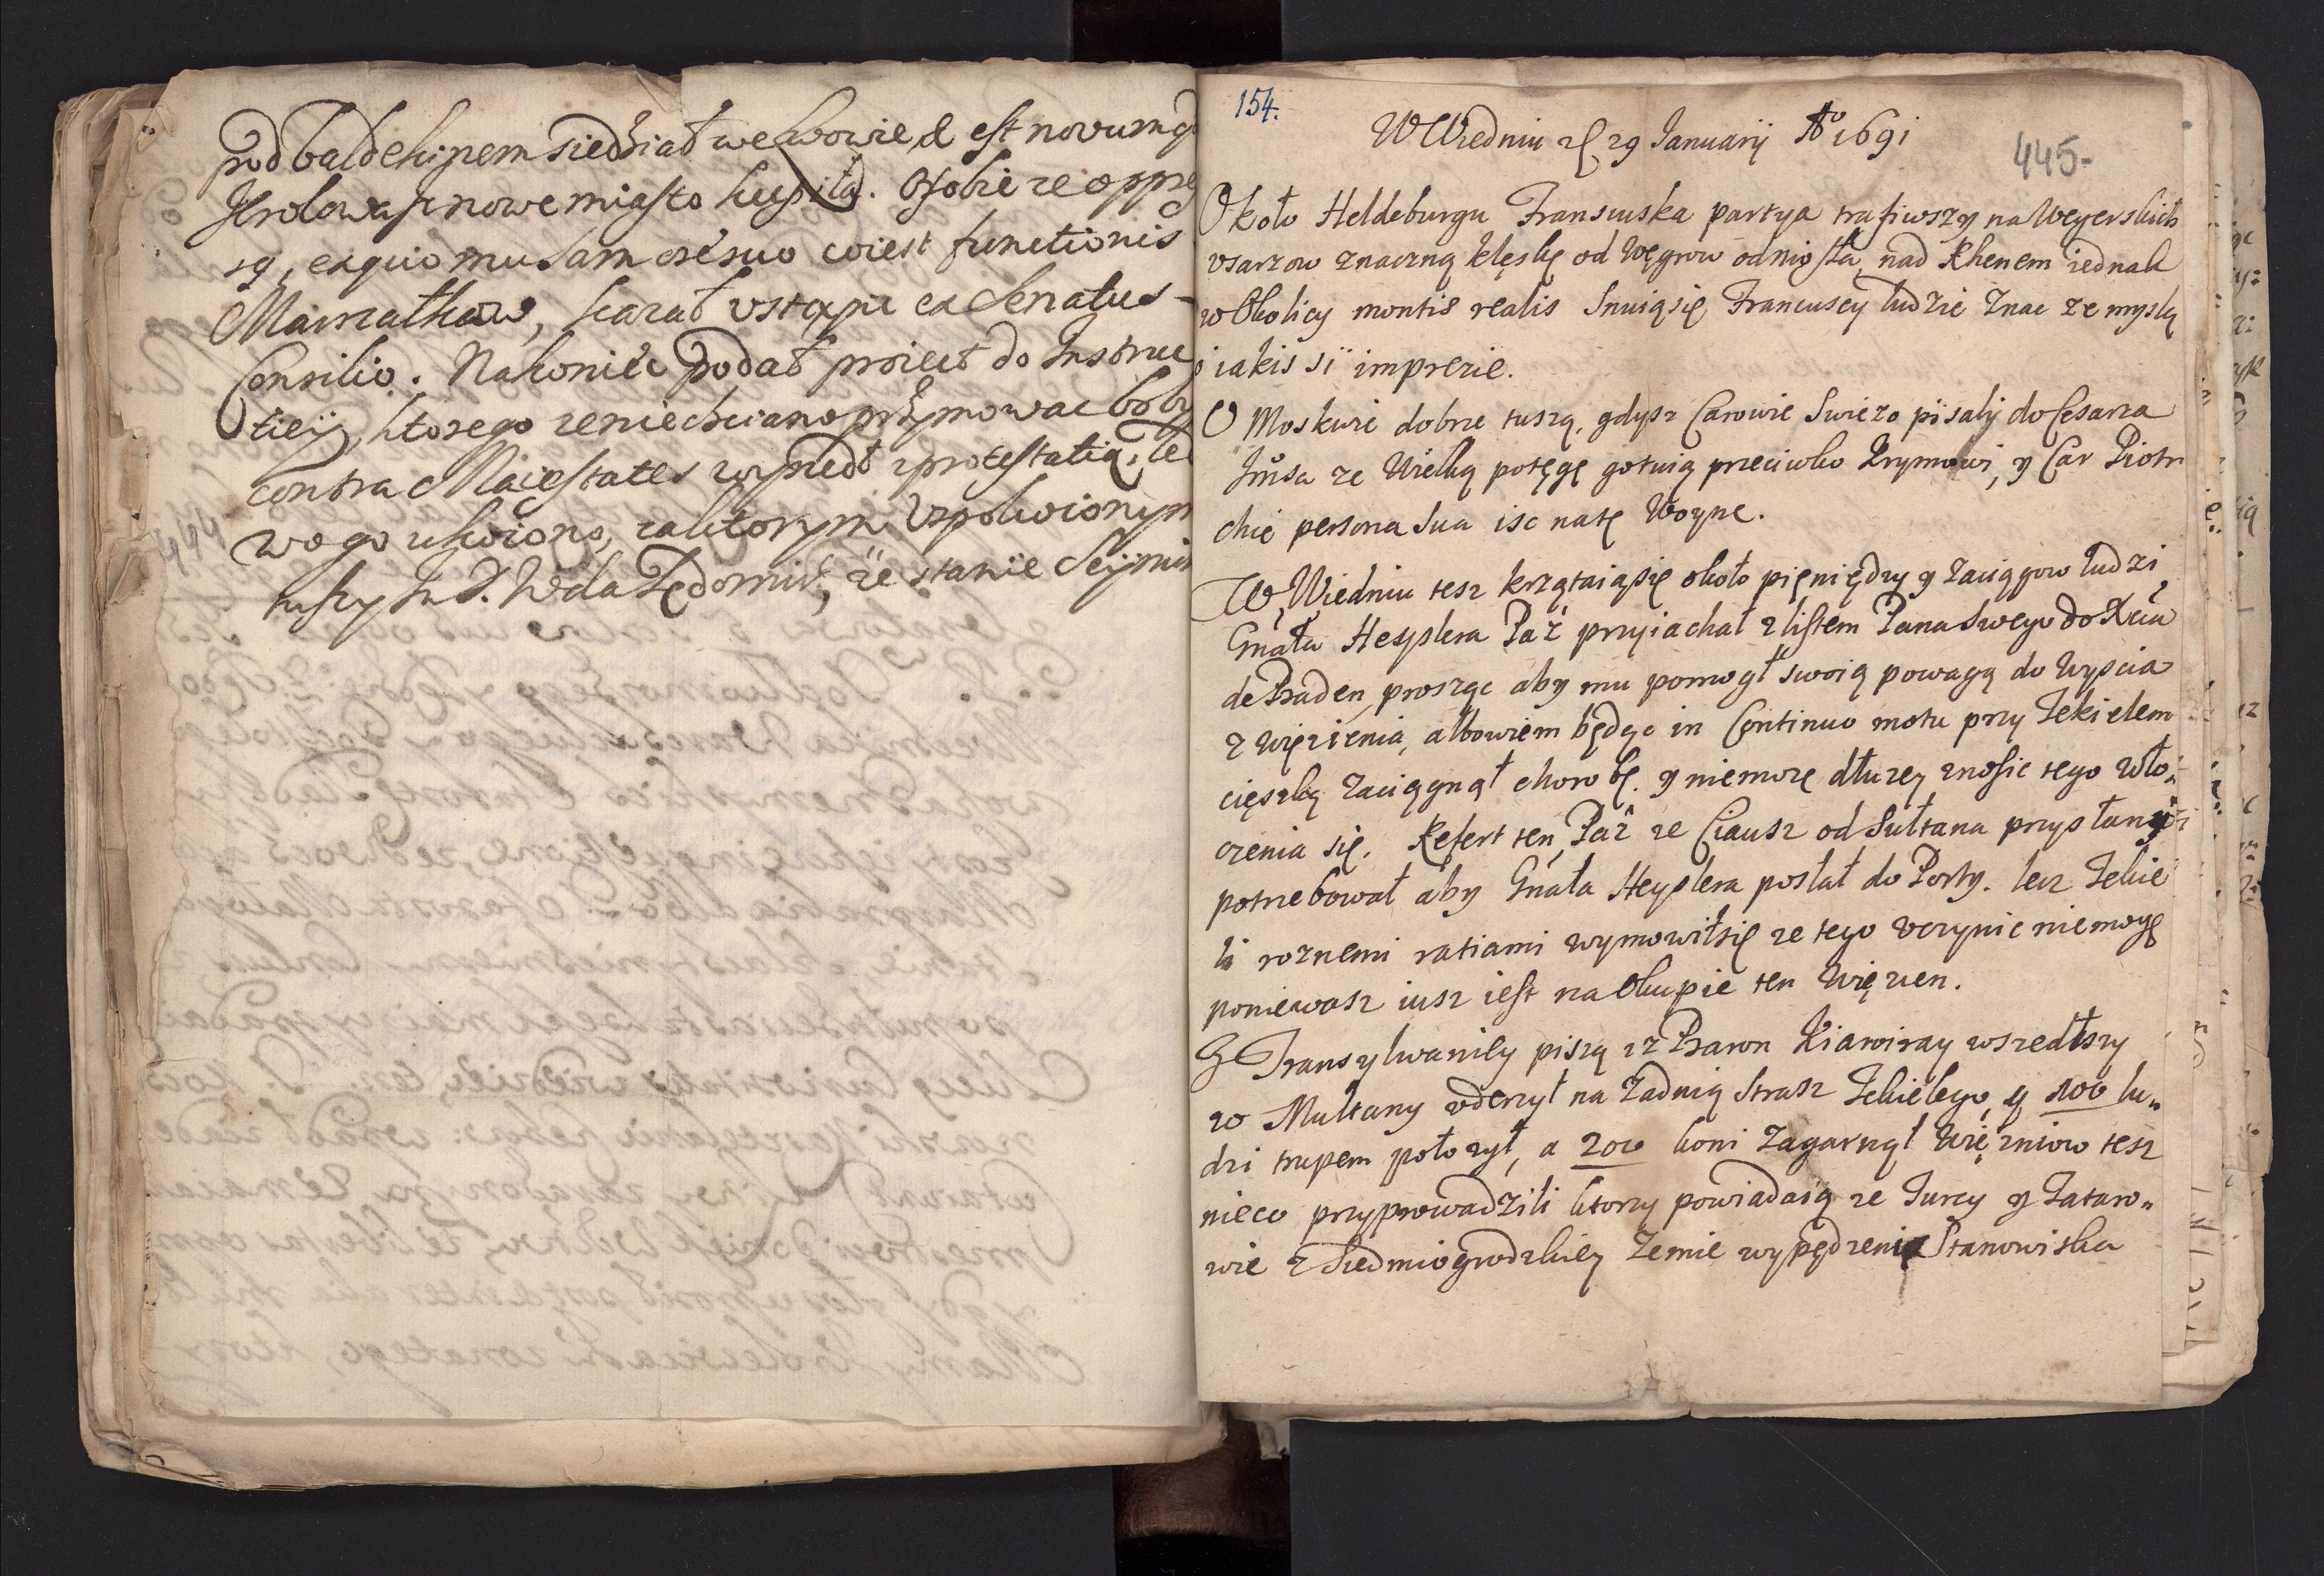 pod baldekinem siedział we Lwowie, et est novum, q
Krolowa Jr nowe miasto kupiła. O sobie ze oppre
są, ex quo mu sam cosesuo coiest functionis
Marszałkow, kazał ustąpic ex Senatus
Consilio. Nakoniec podał proiect do Instruc
tiey, ktorego ze niechciano przymowac bo by
contra Maiestates wyszedł z protestatią, led
wo go ukoiono, zaktorym Uspokoionym
tuszy J. P. Wda Sędomir, ze stanie Seymu
154.
W Wiedniu d 29 Januarij Ao 1691
445.
Około Heldeburgu Fransuska partya trafiwszy na Węgerskich
Usarzow znaczną klęskę od Węgrow odniosła, nad Rhenem iednak
w Okolicy montis realis Snuią się Francuscy ludzie Znac ze myslą
o iakis si imprezie.
O Moskwie dobrze tuszą, gdysz Carowie Swiezo pisaly do Cesarza
Jmsa ze Wielką potęgę gotuią przeciwko Krymowi, y Car Piotr
chie persona Sua isc na tę Woynę.
W Wiedniu tesz krzątaią się około pięniędzy y Zaciągow ludzi
Gnała Heyslera Paź przyiachał z listem Pana Swego do Xcia
de Baden, prosząc aby mu pomogł swoią powagą do wyscia
z więzienia, albowiem będąc in Continuo motu przy Tekielem
cięszką Zaciągnął chorobę. y niemoze dłuzey znosic tego wło„
czenia się. Refert ten Paź ze Czausz od Sułtana przysłany
potrzebował aby Gnała Heyslera posłał do Porty. lecz Tekie
li roznemi ratiami wymowił się ze tego uczynic niemogę
poniewasz iusz iest na Okupie ten Więzien.
Z Transylwaniey piszą iz Baron Kiawiray wszedłszy
w Multany uderzył na Zadnią Strasz Tekielego, y 100 lu„
dzi trupem połozył, a 200 koni Zagarnął Więzniow tesz
nieco przyprowadzili ktorzy powiadaią ze Turcy y Tataro„
wie z Siedmiogrodzkiey Zemie wypędzeni Stanowiska